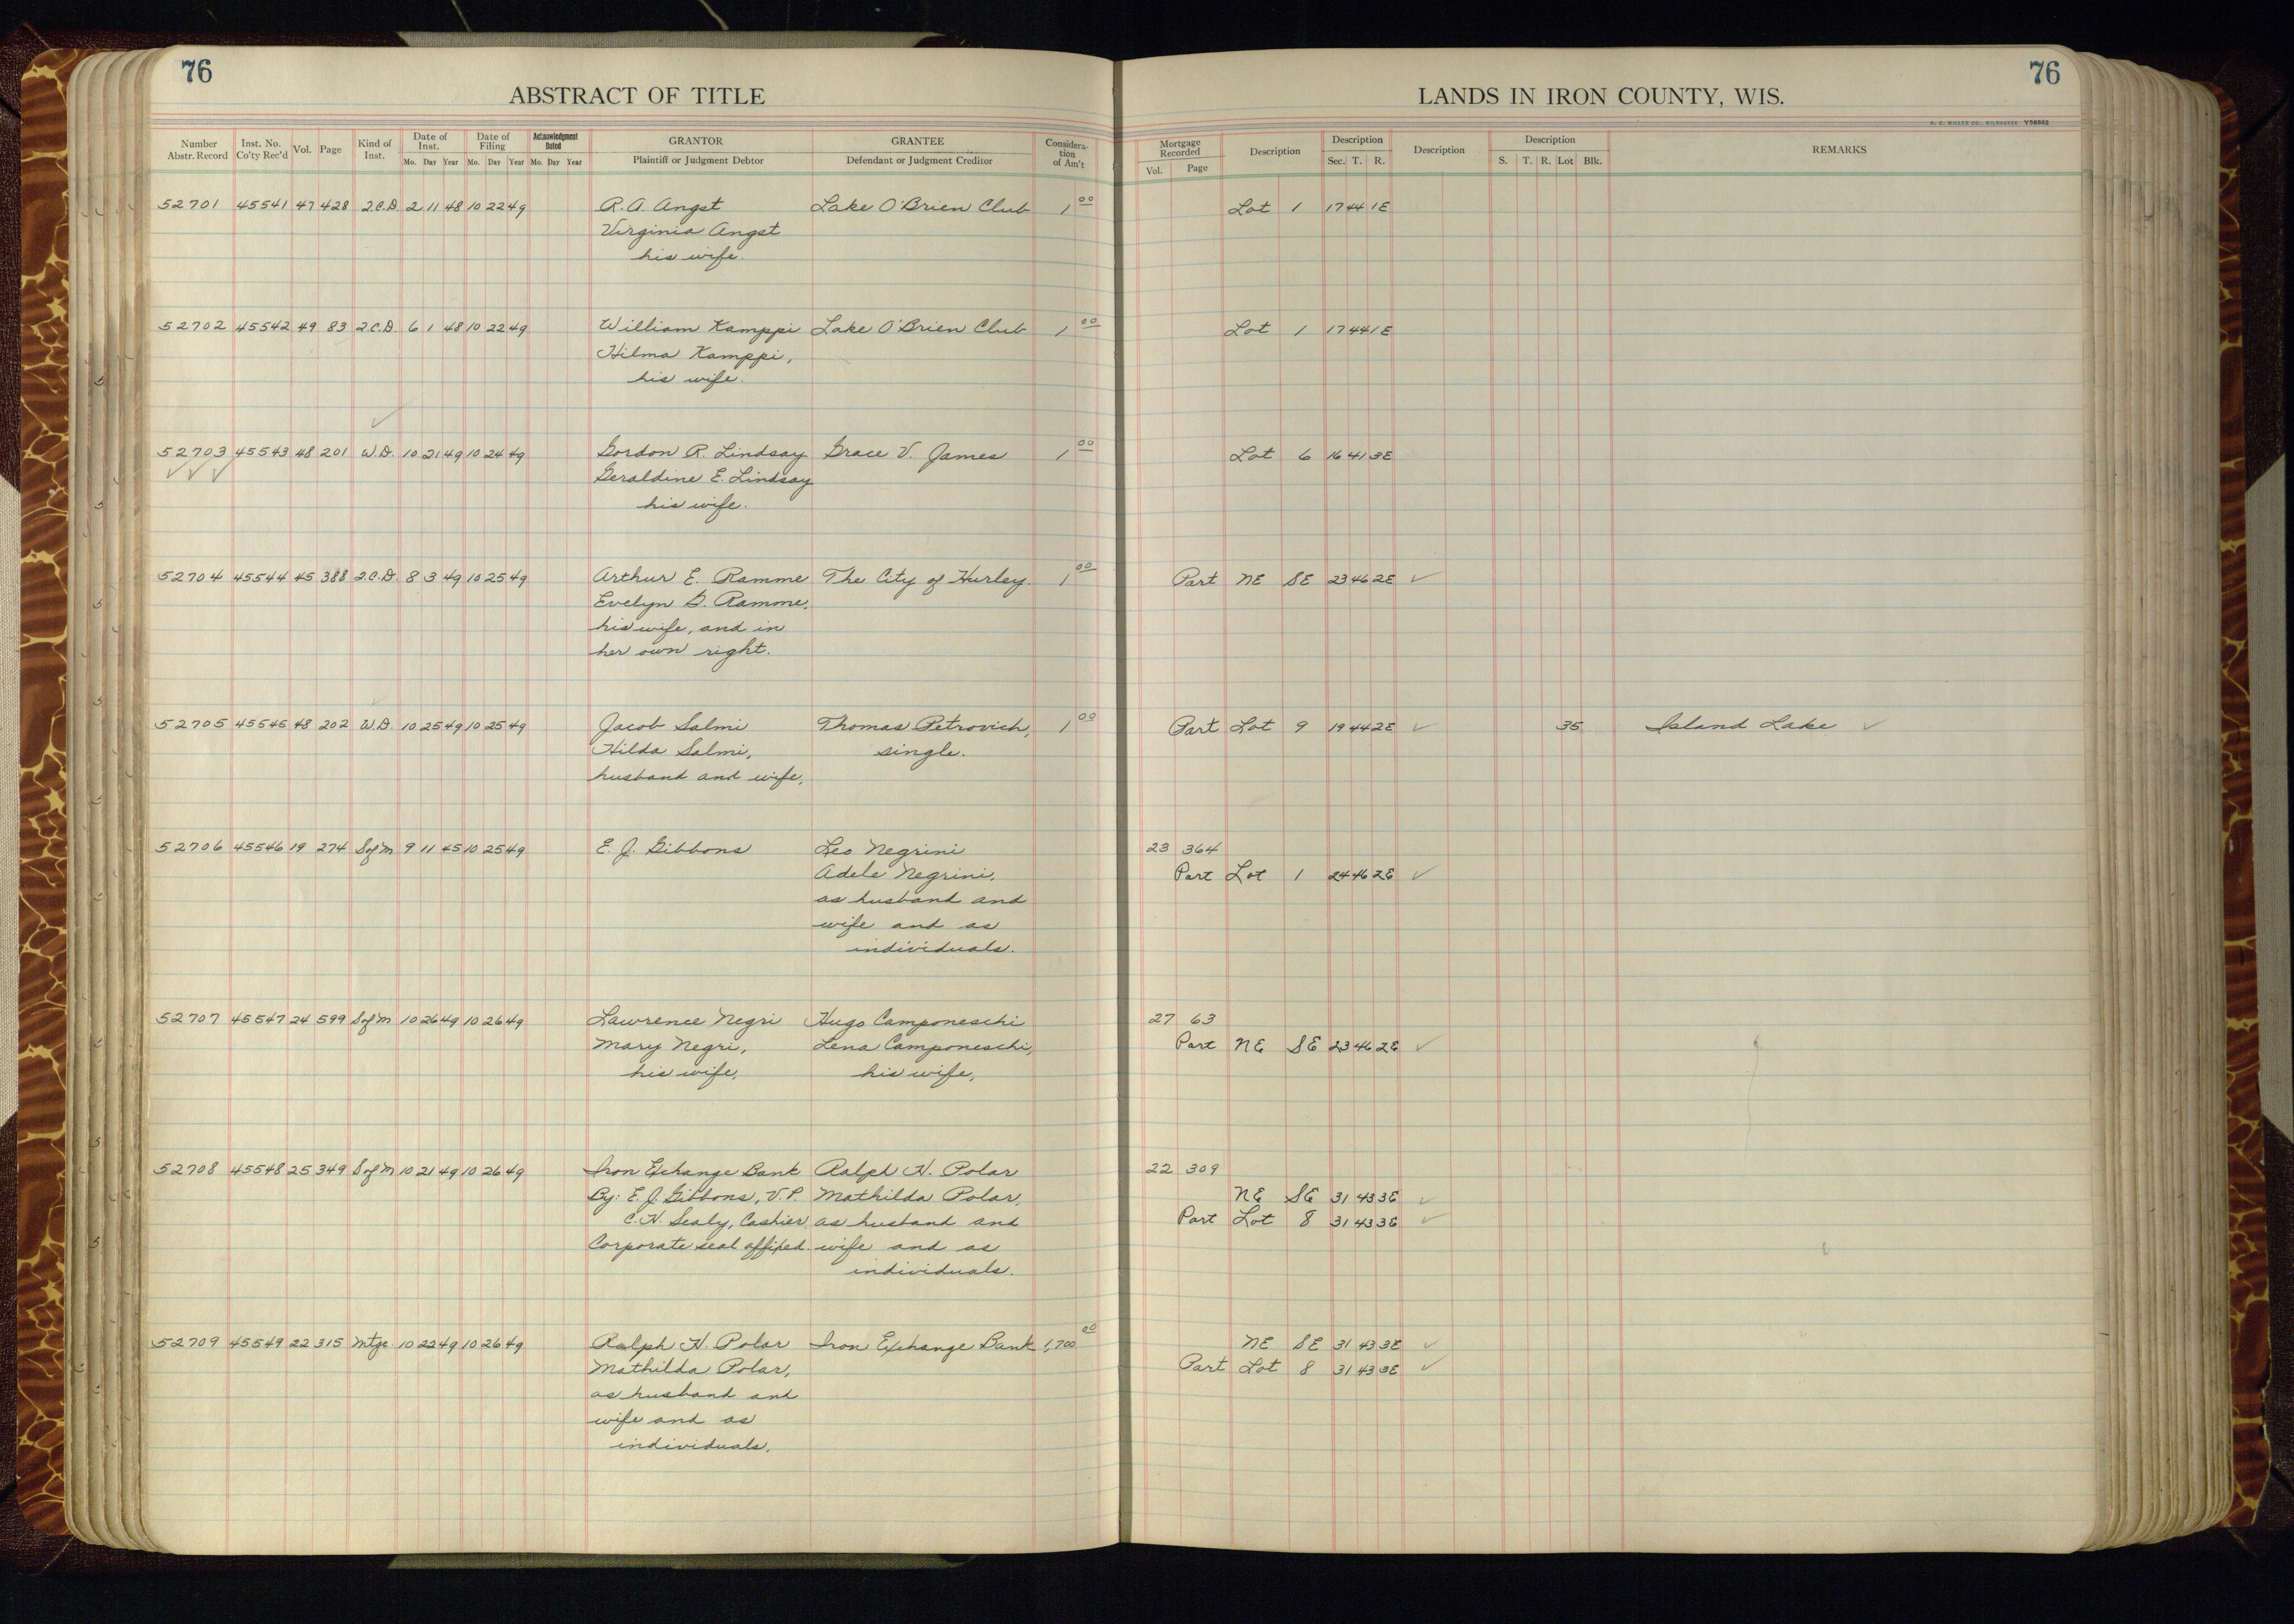 76
ABSTRACT OF TITLE
Number Abstr. Record Inst. No. Co'ty Rec'd Vol. Page Kind of Inst. Date of Inst. Mo. Day Year Date of Filing Mo. Day Year Acknowledgment Dated Mo. Day Year GRANTOR Plaintiff or Judgment Debtor GRANTEE Defendant or Judgment Creditor Consideration of Am't
52701 45541 47 428 Q.C.D. 2 11 48 10 22 49 R. A. Angst Lake O'Brien Club 1 00
Virginia Angst
his wife.
52702 45542 49 83 Q.C.D. 6 1 48 10 22 49 William Kamppi Lake O'Brien Club 1 00
Hilma Kamppi,
his wife.
52703 45543 48 201 W.D. 10 21 49 10 24 49 Gordon R. Lindsay Grace V. James 1 00
Geraldine E. Lindsay
his wife.
52704 45544 45 388 Q.C.D. 8 3 49 10 25 49 Arthur E. Ramme The City of Hurley. 1 00
Evelyn G. Ramme,
his wife, and in
her own right.
52705 45545 48 202 W.D. 10 25 49 10 25 49 Jacob Salmi Thomas Petrovich, 1 00
Hilda Salmi, single.
husband and wife,
52706 45546 19 274 S of M 9 11 45 10 25 49 E. J. Gibbons Leo Negrini
Adele Negrini,
as husband and
wife and as
individuals.
52707 45547 24 599 S of M 10 26 49 10 26 49 Lawrence Negri Hugo Camponeschi
Mary Negri, Lena Camponeschi,
his wife, his wife,
52708 45548 25 349 S of M 10 21 49 10 26 49 Iron Exchange Bank Ralph H. Polar
By: E. J. Gibbons, V.P. Mathilda Polar,
C. H. Sealy, Cashier, as husband and
Corporate seal affixed. wife and as
individuals.
52709 45549 22 315 Mtge. 10 22 49 10 26 49 Ralph H. Polar Iron Exchange Bank 1,700 00
Mathilda Polar,
as husband and
wife and as
individuals.
76
LANDS IN IRON COUNTY, WIS.
H. C. MILLER CO., MILWAUKEE Y56662
Mortgage Recorded Vol. Page Description Description Sec. T. R. Description Description S. T. R. Lot Blk. REMARKS
Lot 1 17 44 1E
Lot 1 17 44 1E
Lot 6 16 41 3E
Part NE SE 23 46 2E ✓
Part Lot 9 19 44 2E ✓ 35 Island Lake ✓
23 364
Part Lot 1 24 46 2E ✓
27 63
Part NE SE 23 46 2E ✓
22 309
NE SE 31 43 3E ✓
Part Lot 8 31 43 3E ✓
NE SE 31 43 3E ✓
Part Lot 8 31 43 3E ✓